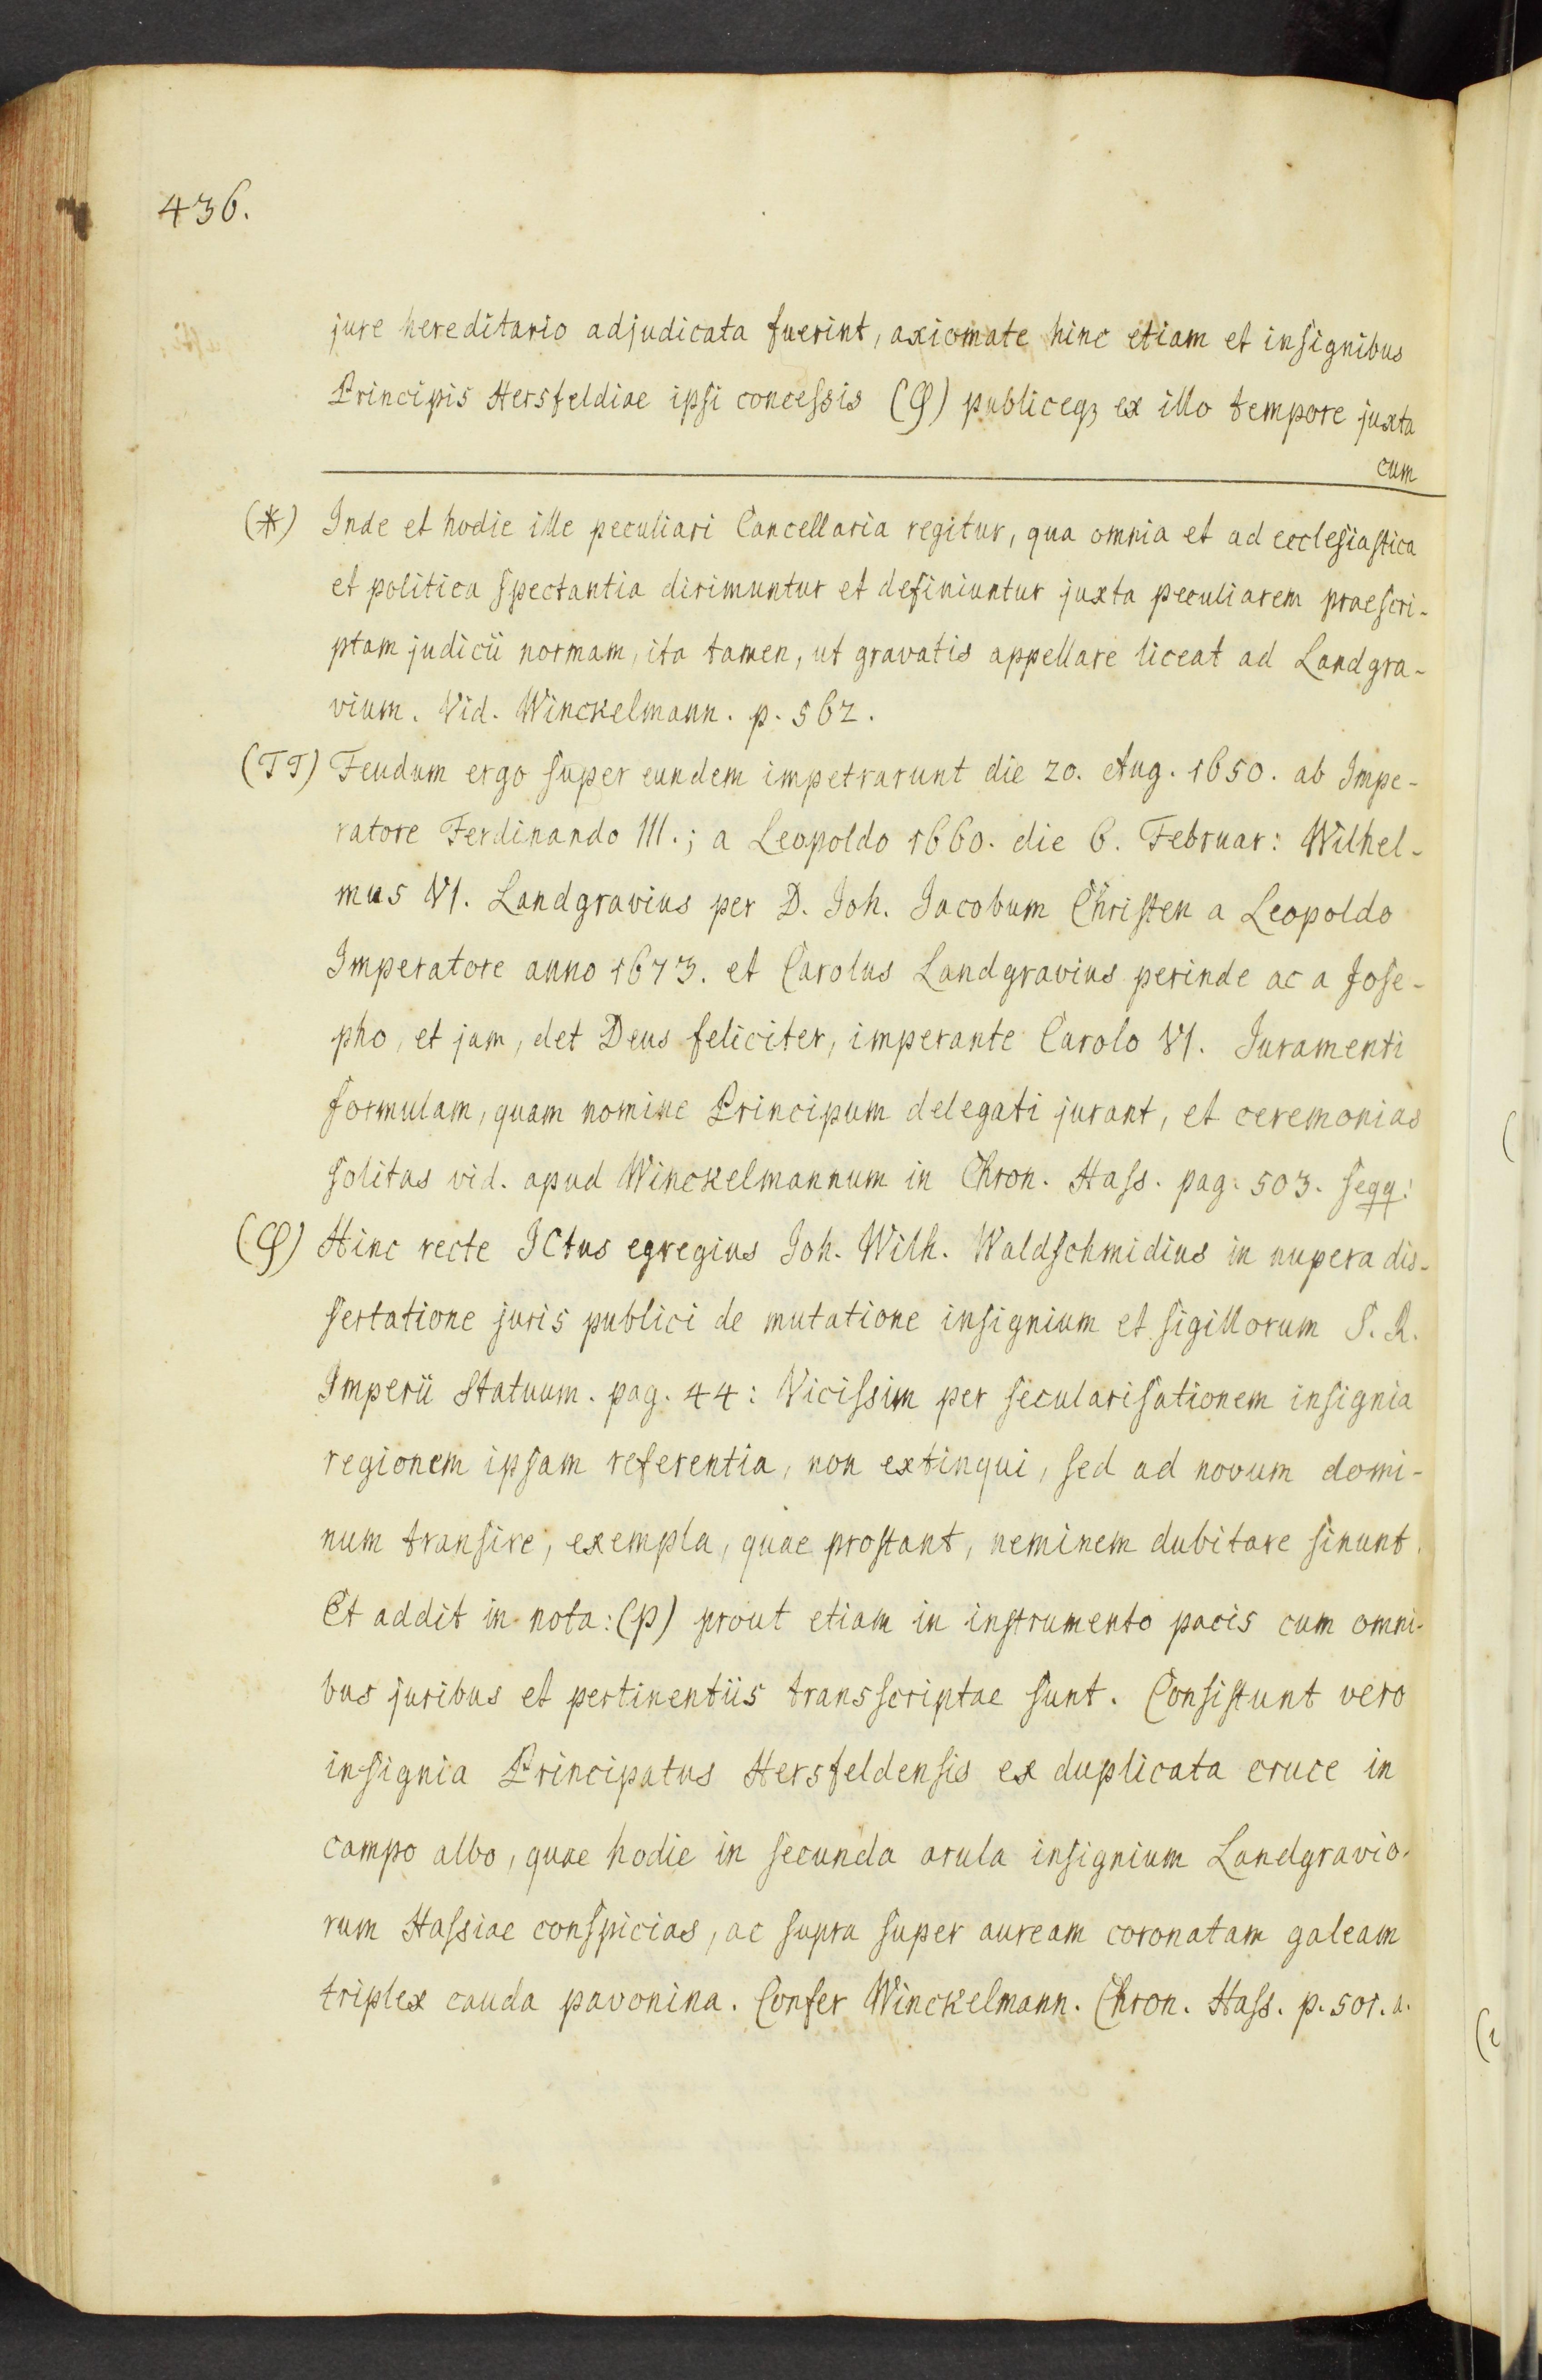 436.
jure hereditario adjudicata fuerint, axiomate hinc etiam et insignibus
Principis Hersfeldiae ipsi concessis (φ) publiceqꝫ ex illo tempore juxta
cum
(*) Inde et hodie ille peculiari Cancellaria regitur, qua omnia et ad ecclesiastica
et politica spectantia dirimuntur et definiuntur juxta peculiarem praescri-
ptam judicii normam, ita tamen, ut gravatis appellare liceat ad Landgra-
vium. Vid. Winckelmann. p. 562.
(TT) Feudum ergo super eundem impetrarunt die 20. Aug. 1650. ab Impe-
ratore Ferdinando III.; a Leopoldo 1660. die 6. Februar: Wilhel-
mus VI. Landgravius per D. Joh. Jacobum Christen a Leopoldo
Imperatore anno 1673. et Carolus Landgravius perinde ac a Jose-
pho, et jam, det Deus feliciter, imperante Carolo VI. Juramenti
formulam, quam nomine Principum delegati jurant, et ceremonias
solitas vid. apud Winckelmannum in Chron. Hass. pag. 503. seqq.
(φ) Hinc recte ICtus egregius Joh. Wilh. Waldschmidius in nupera dis-
sertatione juris publici de mutatione insignium et sigillorum S. R.
Imperii Statuum. pag. 44: Vicissim per secularisationem insignia
regionem ipsam referentia, non extinqui, sed ad novum domi-
num transire, exempla, quae prostant, neminem dubitare sinunt.
Et addit in nota: (p) prout etiam in instrumento pacis cum omni-
bus juribus et pertinentiis transscriptae sunt. Consistunt vero
insignia Principatus Hersfeldensis ex duplicata cruce in
campo albo, quae hodie in secunda arula insignium Landgravio-
rum Hassiae conspicias, ac supra super auream coronatam galeam
triplex cauda pavonina. Confer Winckelmann. Chron. Hass. p. 501. a.